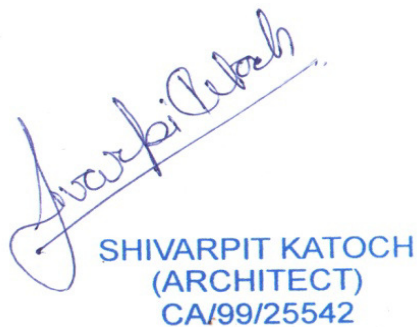 Shivarpit Katoch
SHIVARPIT KATOCH
(ARCHITECT)
CA/99/25542